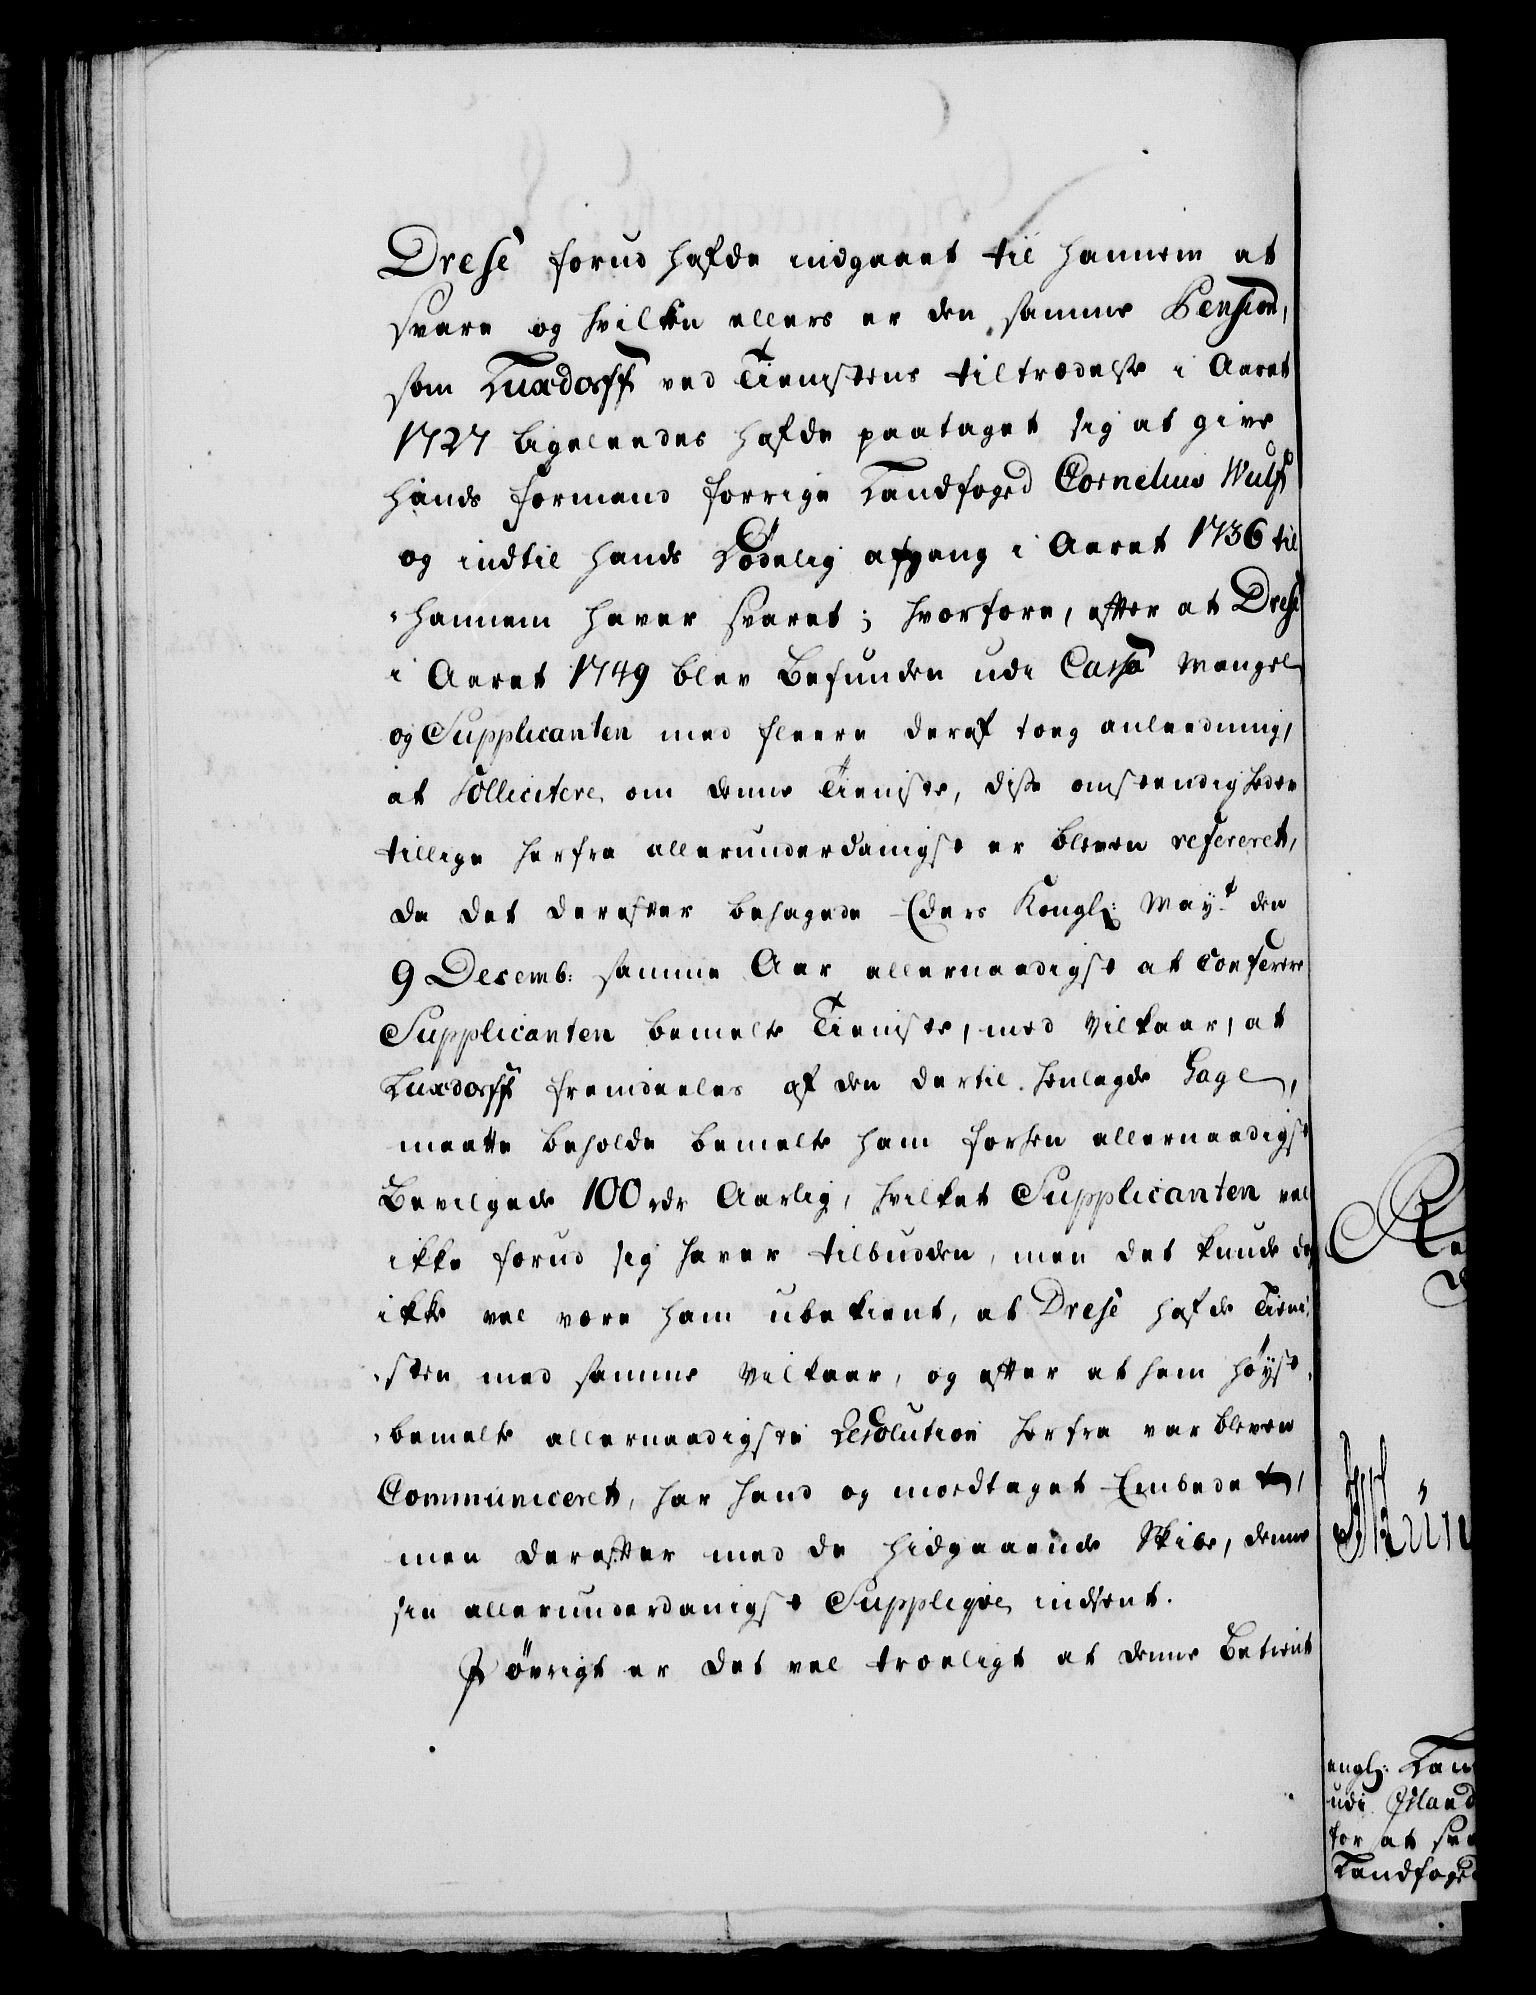 Drese forud hafde indgaaet til hannem at
svare og hvilken ellers er den samme Pension,
som Luxdorff ved Tienistens tiltrædelse i Aaret
1727 ligeleedes hafde paataget sig at give
hands formand forrige Landfoged Cornelius Wulf
og indtil hands Dødelig afgang i Aaret 1736 til
hannem haver svaret; hvorfore, efter at Drese
i Aaret 1749 blev befunden udi Cassa Mangel
og Supplicanten med fleere deraf toeg anleedning,
at sollicitere om denne Tieniste, disse omstendigheder
tillige herfra allerunderdanigst er bleven refereret,
da det derefter behagede Eders Kongl: May.t den
9 Decemb: samme Aar allernaadigst at conferere
Supplicanten bemelte Tieniste, med Vilkaar, at
Luxdorff fremdeeles af den dertil henlagde Gage,
maatte beholde bemelte ham forhen allernaadigst
Bevilgede 100 rdr Aarlig, hvilket Supplicanten vel
ikke forud sig haver tilbudden, men det kunde dog
ikke vel være ham ubekient, at Drese hafde Tieni-
sten med samme Vilkaar, og efter at ham høyst-
bemelte allernaadigste Resolution herfra var bleven
Communiceret, har hand og modtaget Embedet,
men derefter med de hidgaaende Skibe, denne
sin allerunderdanigste Suppliqve indsent.
J øvrigt er det vel troeligt at denne Betient
Kün
engl: Lan
udi Jsland
for at
Landfoged